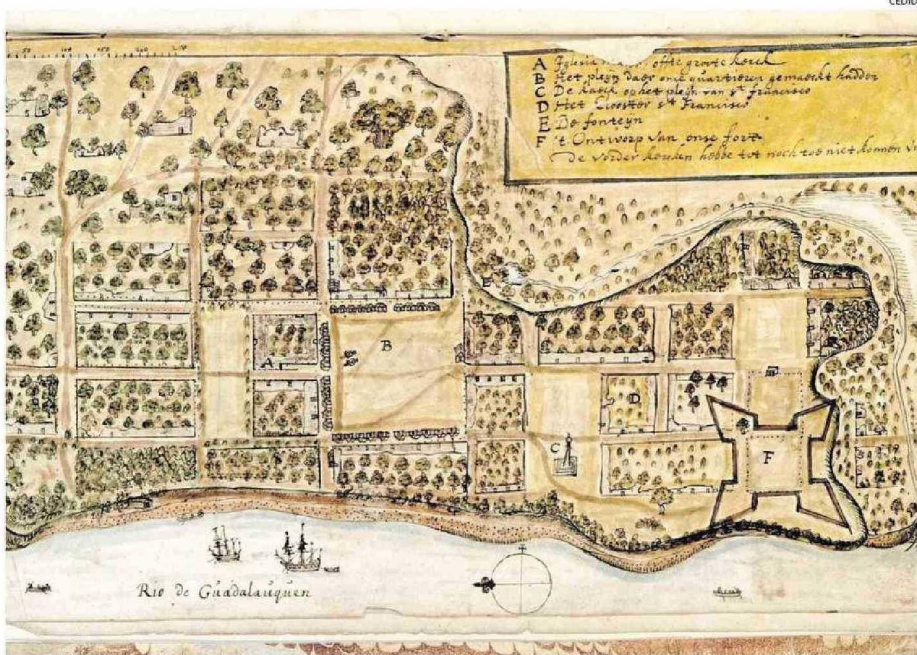 CEDIDA
50 100 150 200 250
A Iglesia ofte groote kerck
B Het pleyn daer onse quartieren gemaeckt hadden
C De kaeck op het pleyn van st francisco
D Het Clooster st Francisco
E De fonteyn
F 't Ontworp van onse fort
De vorder houden hebbe tot noch toe niet konnen
E
B
A
D
C
F
Rio de Guadalauquen